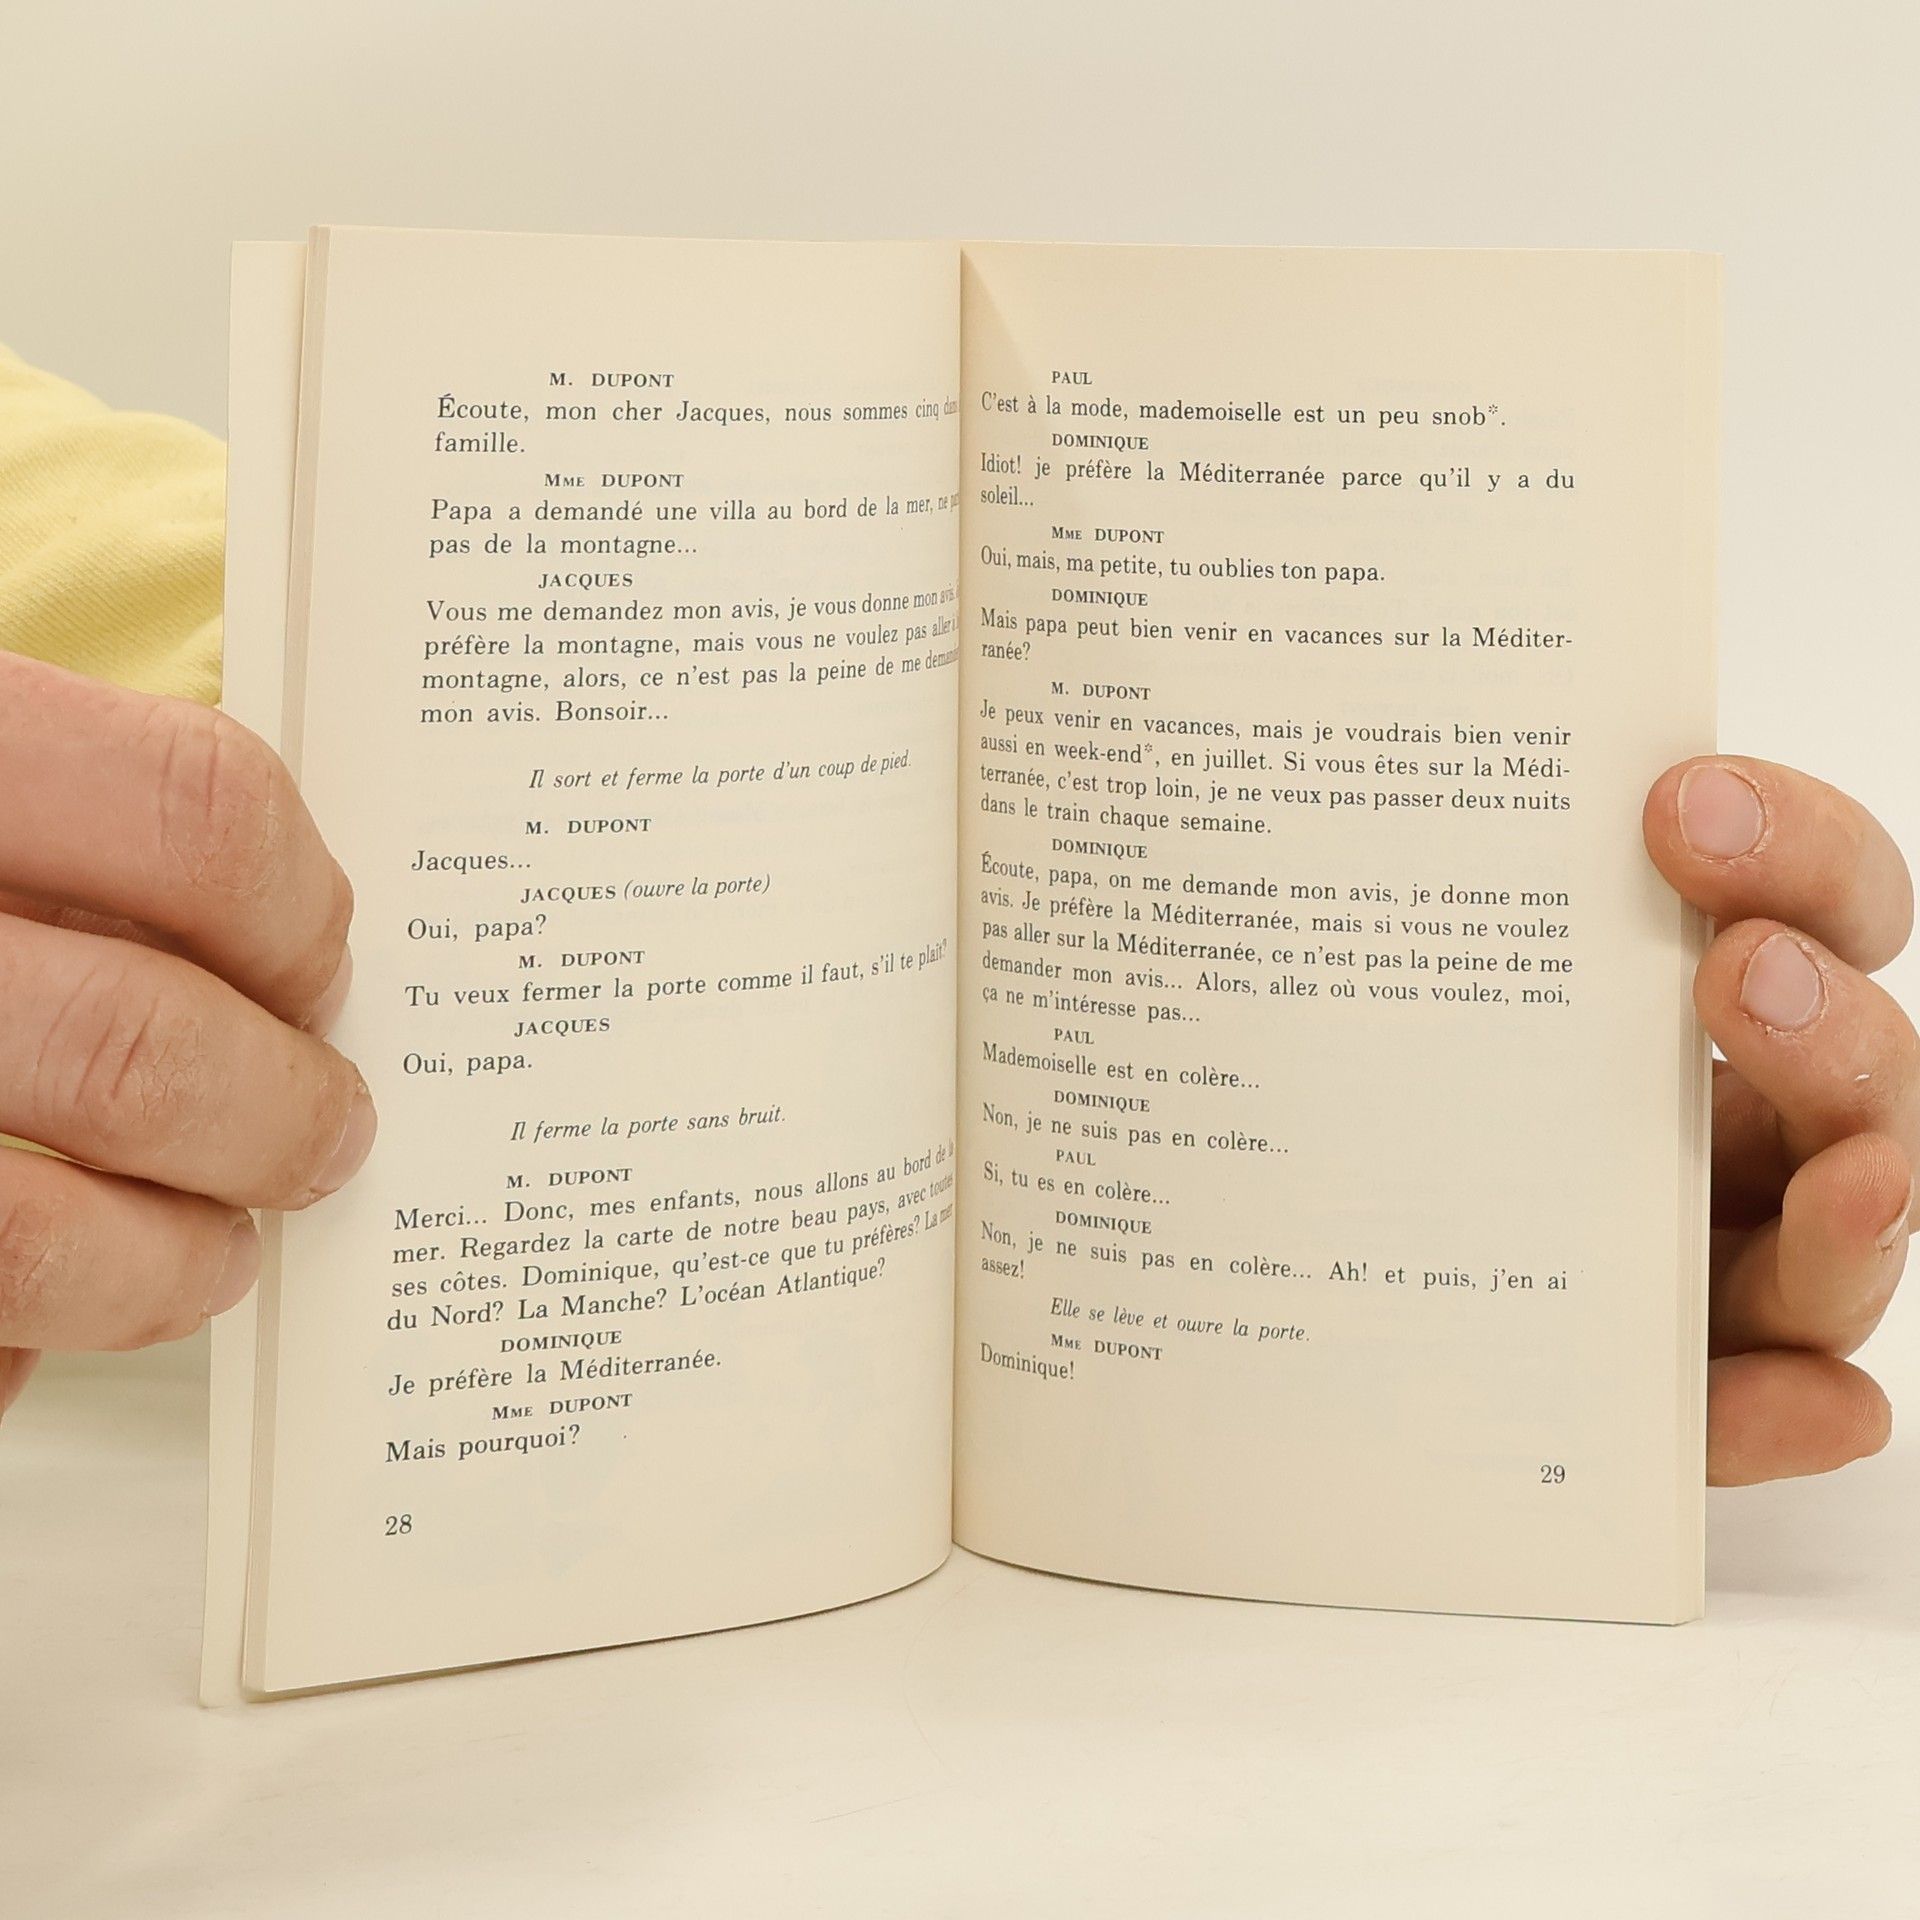 M. DUPONT
Écoute, mon cher Jacques, nous sommes cinq dans
famille.
MME DUPONT
Papa a demandé une villa au bord de la mer, ne
pas de la montagne...
JACQUES
Vous me demandez mon avis, je vous donne mon avis.
préfère la montagne, mais vous ne voulez pas aller à
montagne, alors, ce n'est pas la peine de me demander
mon avis. Bonsoir...
Il sort et ferme la porte d'un coup de pied.
M. DUPONT
Jacques...
JACQUES (ouvre la porte)
Oui, papa?
M. DUPONT
Tu veux fermer la porte comme il faut, s'il te plaît?
JACQUES
Oui, papa.
Il ferme la porte sans bruit.
M. DUPONT
Merci... Donc, mes enfants, nous allons au bord de la
mer. Regardez la carte de notre beau pays, avec toutes
ses côtes. Dominique, qu'est-ce que tu préfères? La mer
du Nord? La Manche? L'océan Atlantique?
DOMINIQUE
Je préfère la Méditerranée.
MME DUPONT
Mais pourquoi?
28
PAUL
C'est à la mode, mademoiselle est un peu snob*.
DOMINIQUE
Idiot! je préfère la Méditerranée parce qu'il y a du
soleil...
MME DUPONT
Oui, mais, ma petite, tu oublies ton papa.
DOMINIQUE
Mais papa peut bien venir en vacances sur la Méditer-
ranée?
M. DUPONT
Je peux venir en vacances, mais je voudrais bien venir
aussi en week-end*, en juillet. Si vous êtes sur la Médi-
terranée, c'est trop loin, je ne veux pas passer deux nuits
dans le train chaque semaine.
DOMINIQUE
Écoute, papa, on me demande mon avis, je donne mon
avis. Je préfère la Méditerranée, mais si vous ne voulez
pas aller sur la Méditerranée, ce n'est pas la peine de me
demander mon avis... Alors, allez où vous voulez, moi,
ça ne m'intéresse pas...
PAUL
Mademoiselle est en colère...
DOMINIQUE
Non, je ne suis pas en colère...
PAUL
Si, tu es en colère...
DOMINIQUE
Non, je ne suis pas en colère... Ah! et puis, j'en ai
assez!
Elle se lève et ouvre la porte.
MME DUPONT
Dominique!
29